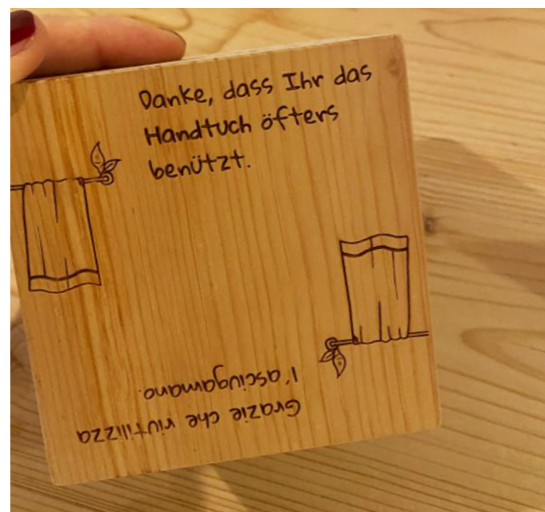 Danke, dass Ihr das
Handtuch öfters
benützt.
Grazie che riutilizza
l'asciugamano.